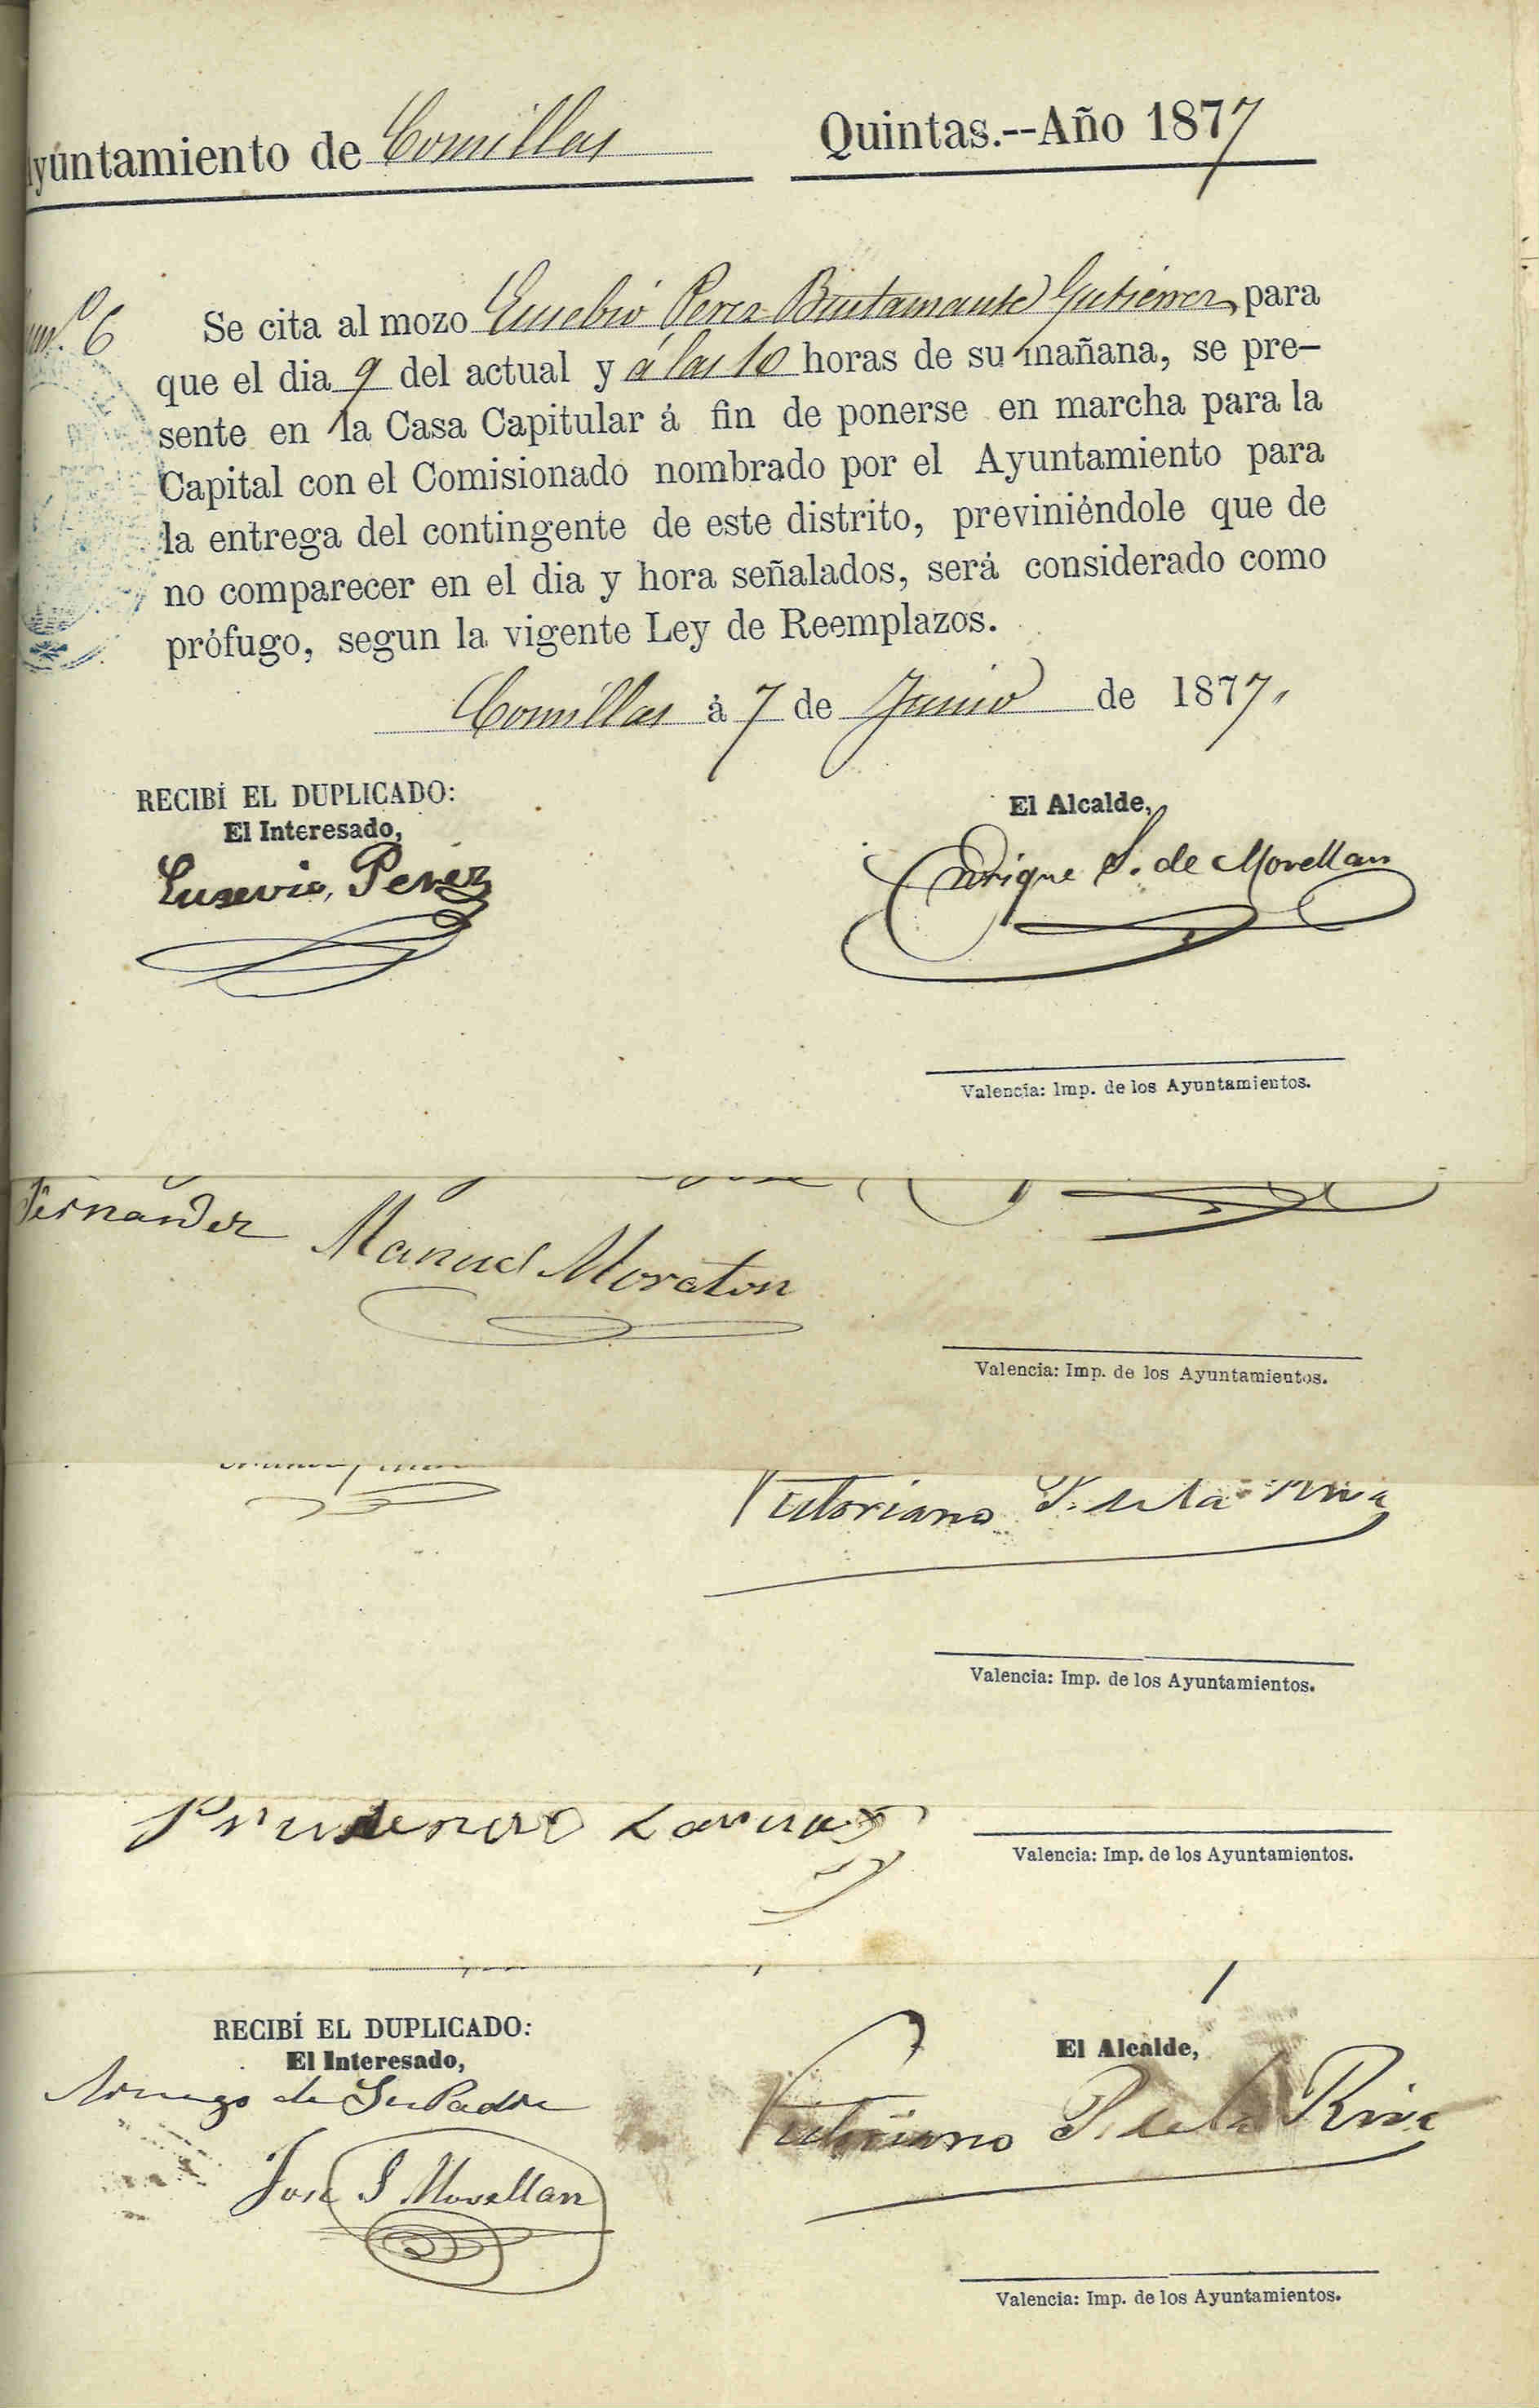 Ayuntamiento de Comillas Quintas.--Año 1877
6 Se cita al mozo Eusebio Perez Bustamante Gutierrez para
que el dia 9 del actual y á las 10 horas de su mañana, se pre-
sente en la Casa Capitular á fin de ponerse en marcha para la
Capital con el Comisionado nombrado por el Ayuntamiento para
la entrega del contingente de este distrito, previniéndole que de
no comparecer en el dia y hora señalados, será considerado como
prófugo, segun la vigente Ley de Reemplazos.
Comillas á 7 de Junio de 1877.
RECIBÍ EL DUPLICADO:
El Interesado,
Eusevio, Perez
El Alcalde,
Enrique S. de Movellan
Valencia: Imp. de los Ayuntamientos.
Fernandez Manuel Moraton
Valencia: Imp. de los Ayuntamientos.
Victoriano P. de la Riva
Valencia: Imp. de los Ayuntamientos.
Prudencio
Valencia: Imp. de los Ayuntamientos.
RECIBÍ EL DUPLICADO:
El Interesado,
Arruego de Su Padre
Jose S Movellan
El Alcalde,
Victoriano P. de la Riva
Valencia: Imp. de los Ayuntamientos.